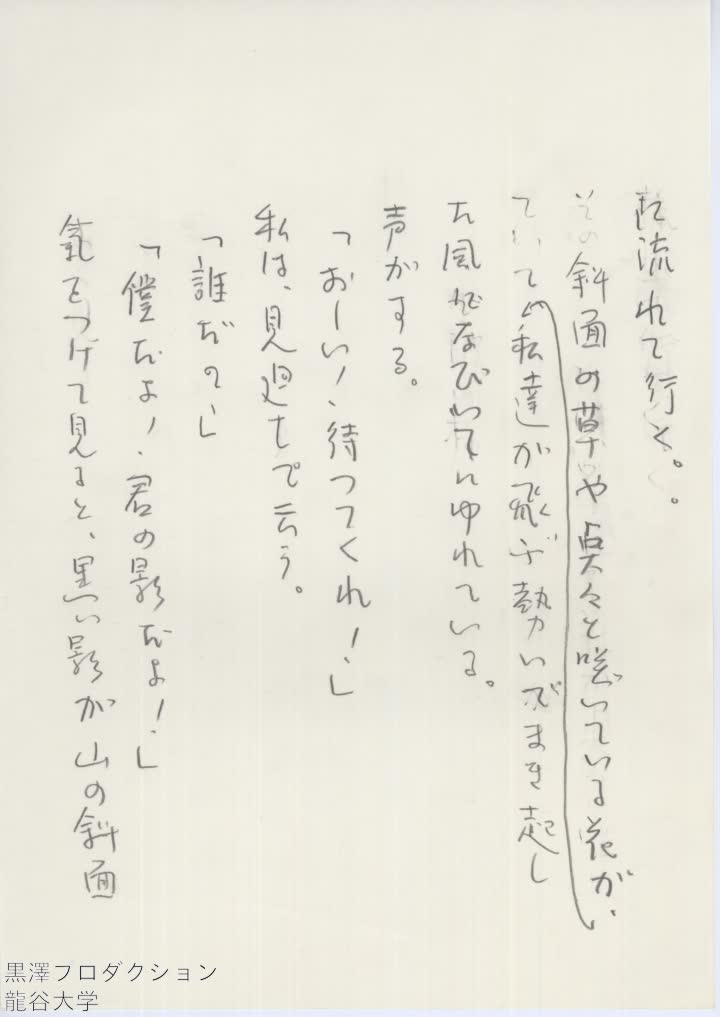 に流れて行く。
その斜面の草や点々と咲いている花が、
ていて私達が飛ぶ勢いでまき起し
た風でなびいてゆれている。
声がする。
「おーい！、待つてくれ！、」
私は、見廻して云う。
「誰だ？、」
「僕だよ！、君の影だよ！、」
気をつけて見ると、黒い影が山の斜面
黒澤プロダクション
龍谷大学